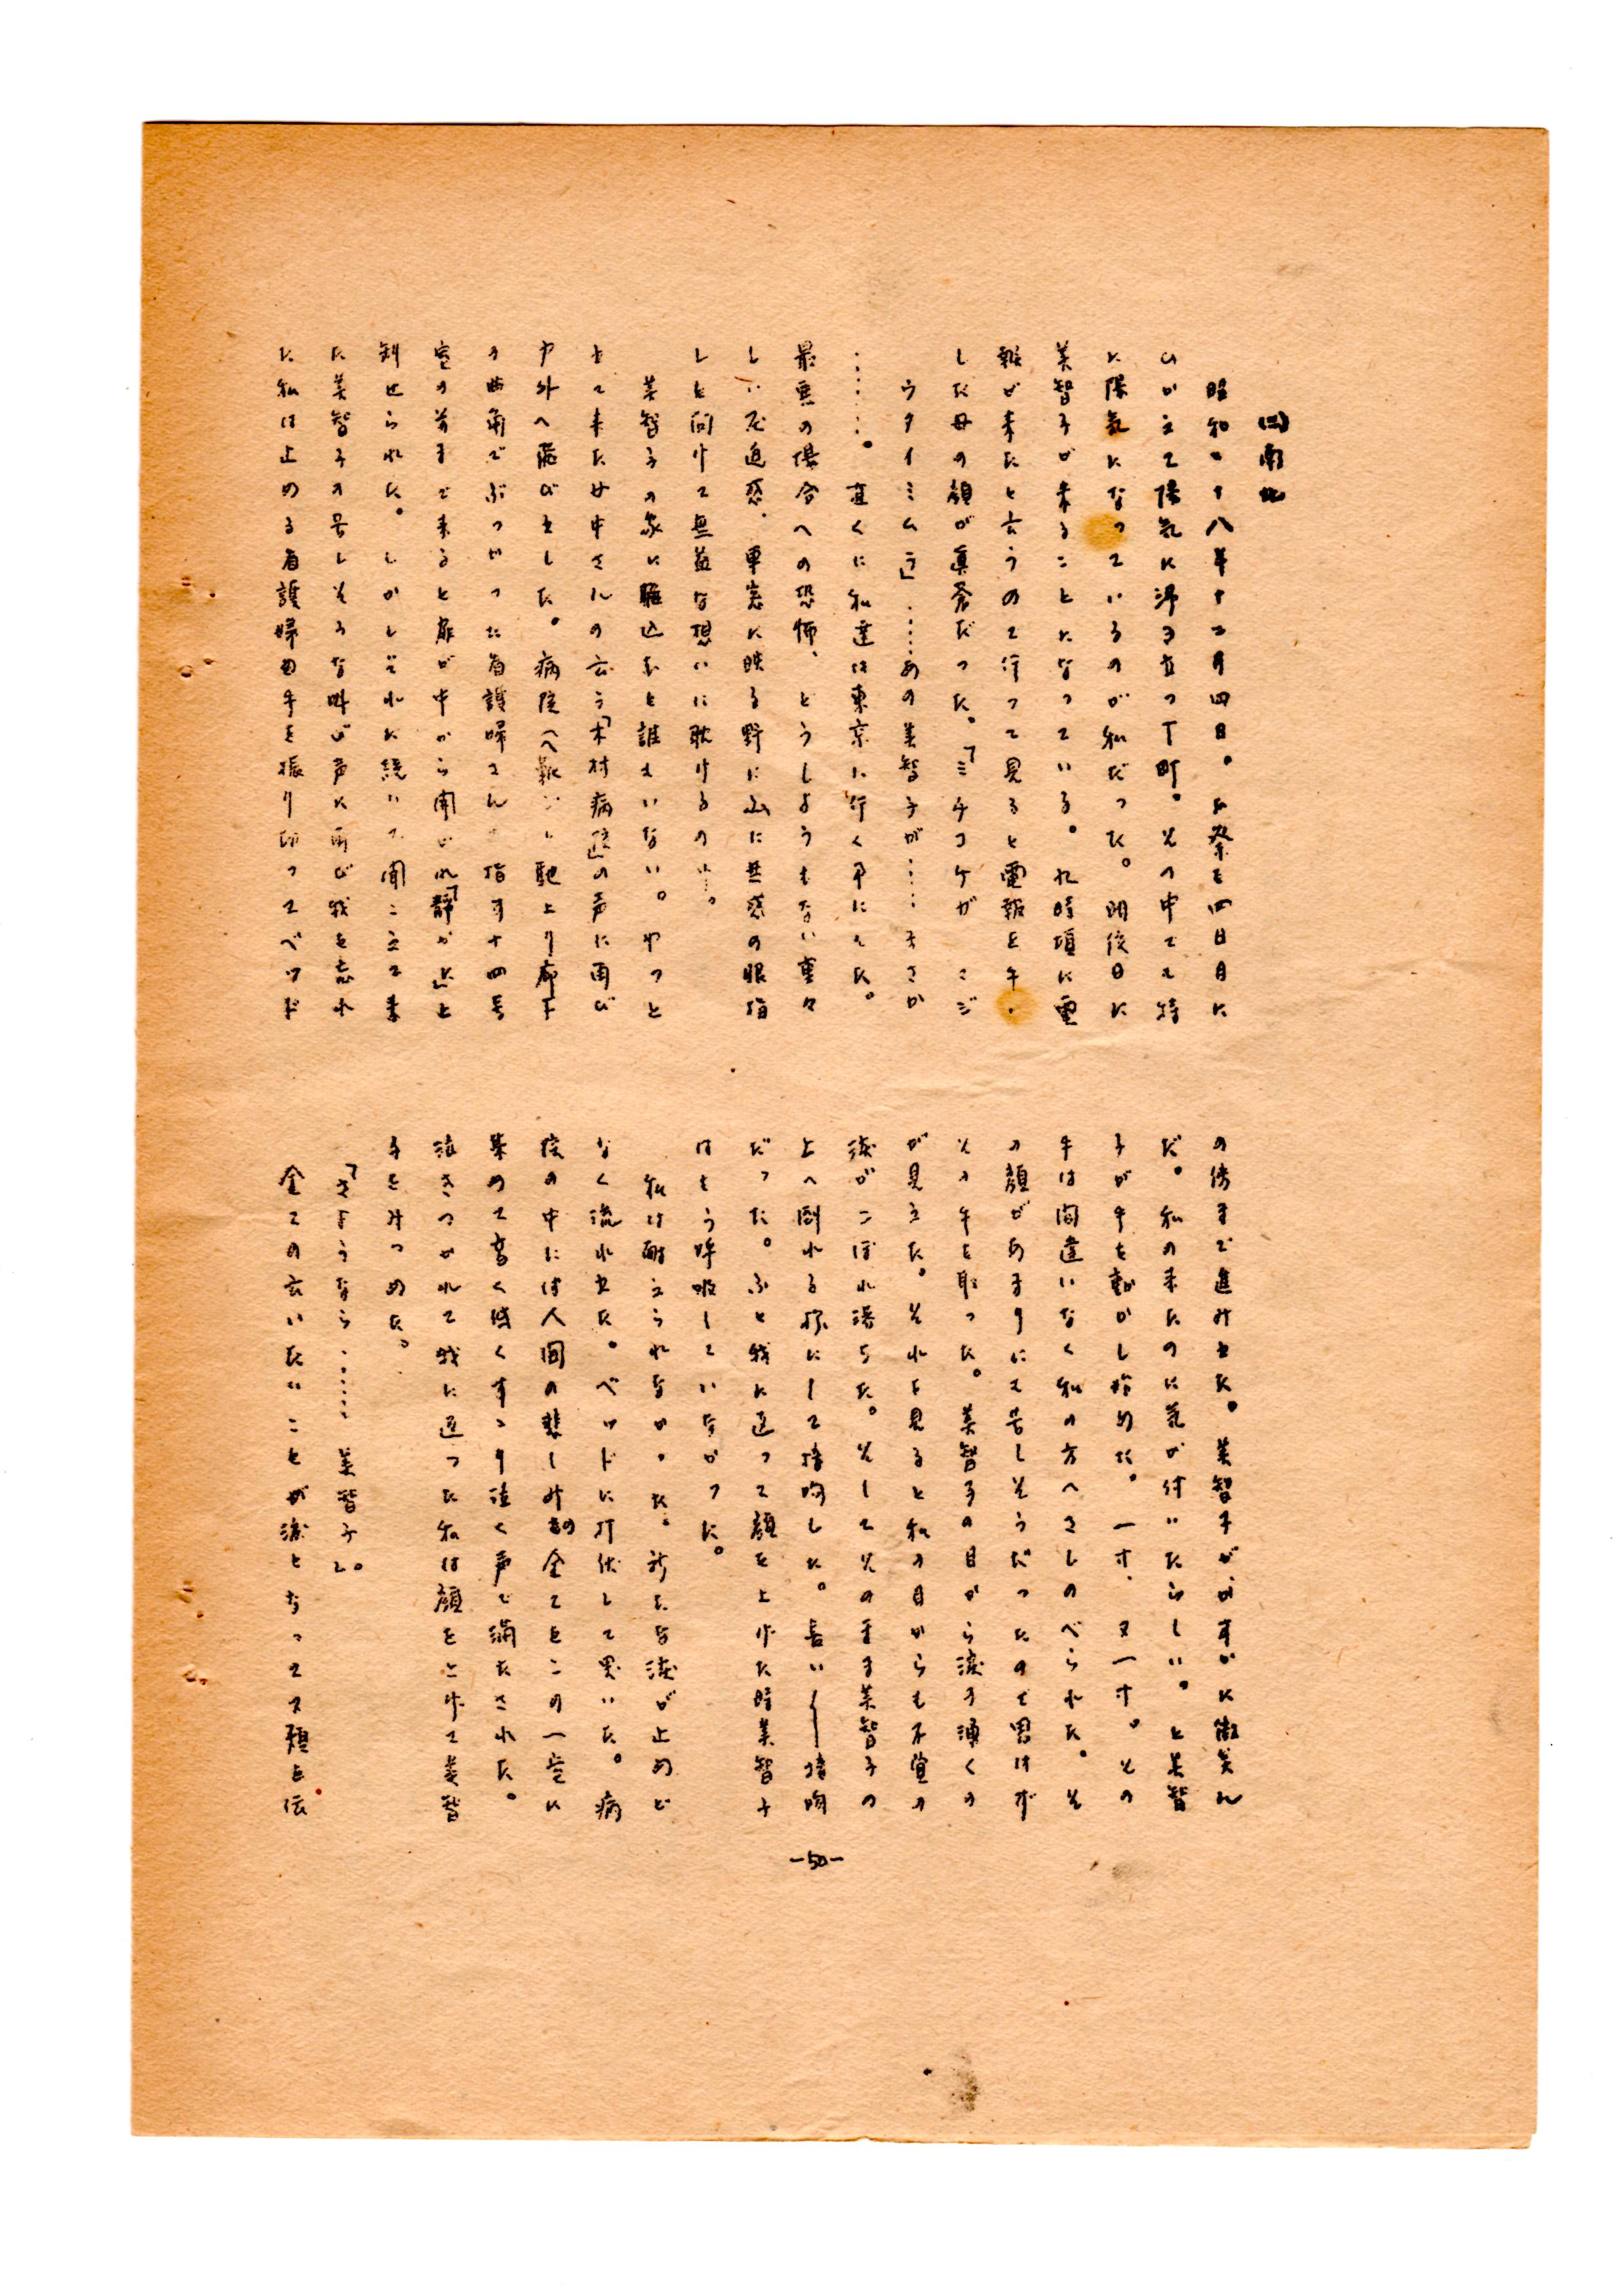 ㈣南北
昭和二十八年十二月四日。お祭を四日目に
ひかえて陽気に沸き立つ丁町。その中でも特
に陽気になっているのが私だった。明後日に
美智子が来ることになっている。九時頃に電
報が来たと云うので行って見ると電報を手・
した母の顔が真蒼だった。「ミチコケガ コジ
ウタイミムラ」……あの美智子が……まさか
……。直くに私達は東京に行く車にした。
最悪の場合への恐怖、どうしようもない重々
しい圧迫感、車窓に映る野に山に無感の眼指
しを向けて無益な想いに耽けるの…。
美智子の家に駆込むと誰もいない。やっと
出て来た女中さんの云う「木村病院」の声に再び
戸外へ飛び出した。病院へ馳上り廊下
の曲角でぶつかった看護婦さんの指す十四号
室の前まで来ると扉が中から開かれ「静かに」と
制せられた。しかしそれに続いて聞こえて来
た美智子の苦しそうな叫び声に再び我を忘れ
た私は止める看護婦の手を振り切ってベッド
の傍まで進み出た。美智子がかすかに微笑ん
だ。私の来たのに気が付いたらしい。と美智
子が手を動かし始めた。一寸、又一寸。その
手は間違いなく私の方へさしのべられた。そ
の顔があまりにも苦しそうだったので思はず
その手を取った。美智子の目から涙の湧くの
が見えた。それを見ると私の目からも不覚の
涙がこぼれ落ちた。そしてそのまま美智子の
上へ倒れる様にして接吻した。長い――接吻
だった。ふと我に返って顔を上げた時美智子
はもう呼吸していなかった。
私は耐えられなかった。新たな涙が止めど
なく流れ出た。ベッドに打伏して哭いた。病
院の中には人間の悲しみの全てをこの一室に
集めて高く低くすゝり泣く声で満たされた。
泣きつかれて我に返った私は顔を上げて美智
子をみつめた。
「さようなら……美智子」。
全ての云いたいことが涙となって又頬を伝
-50-